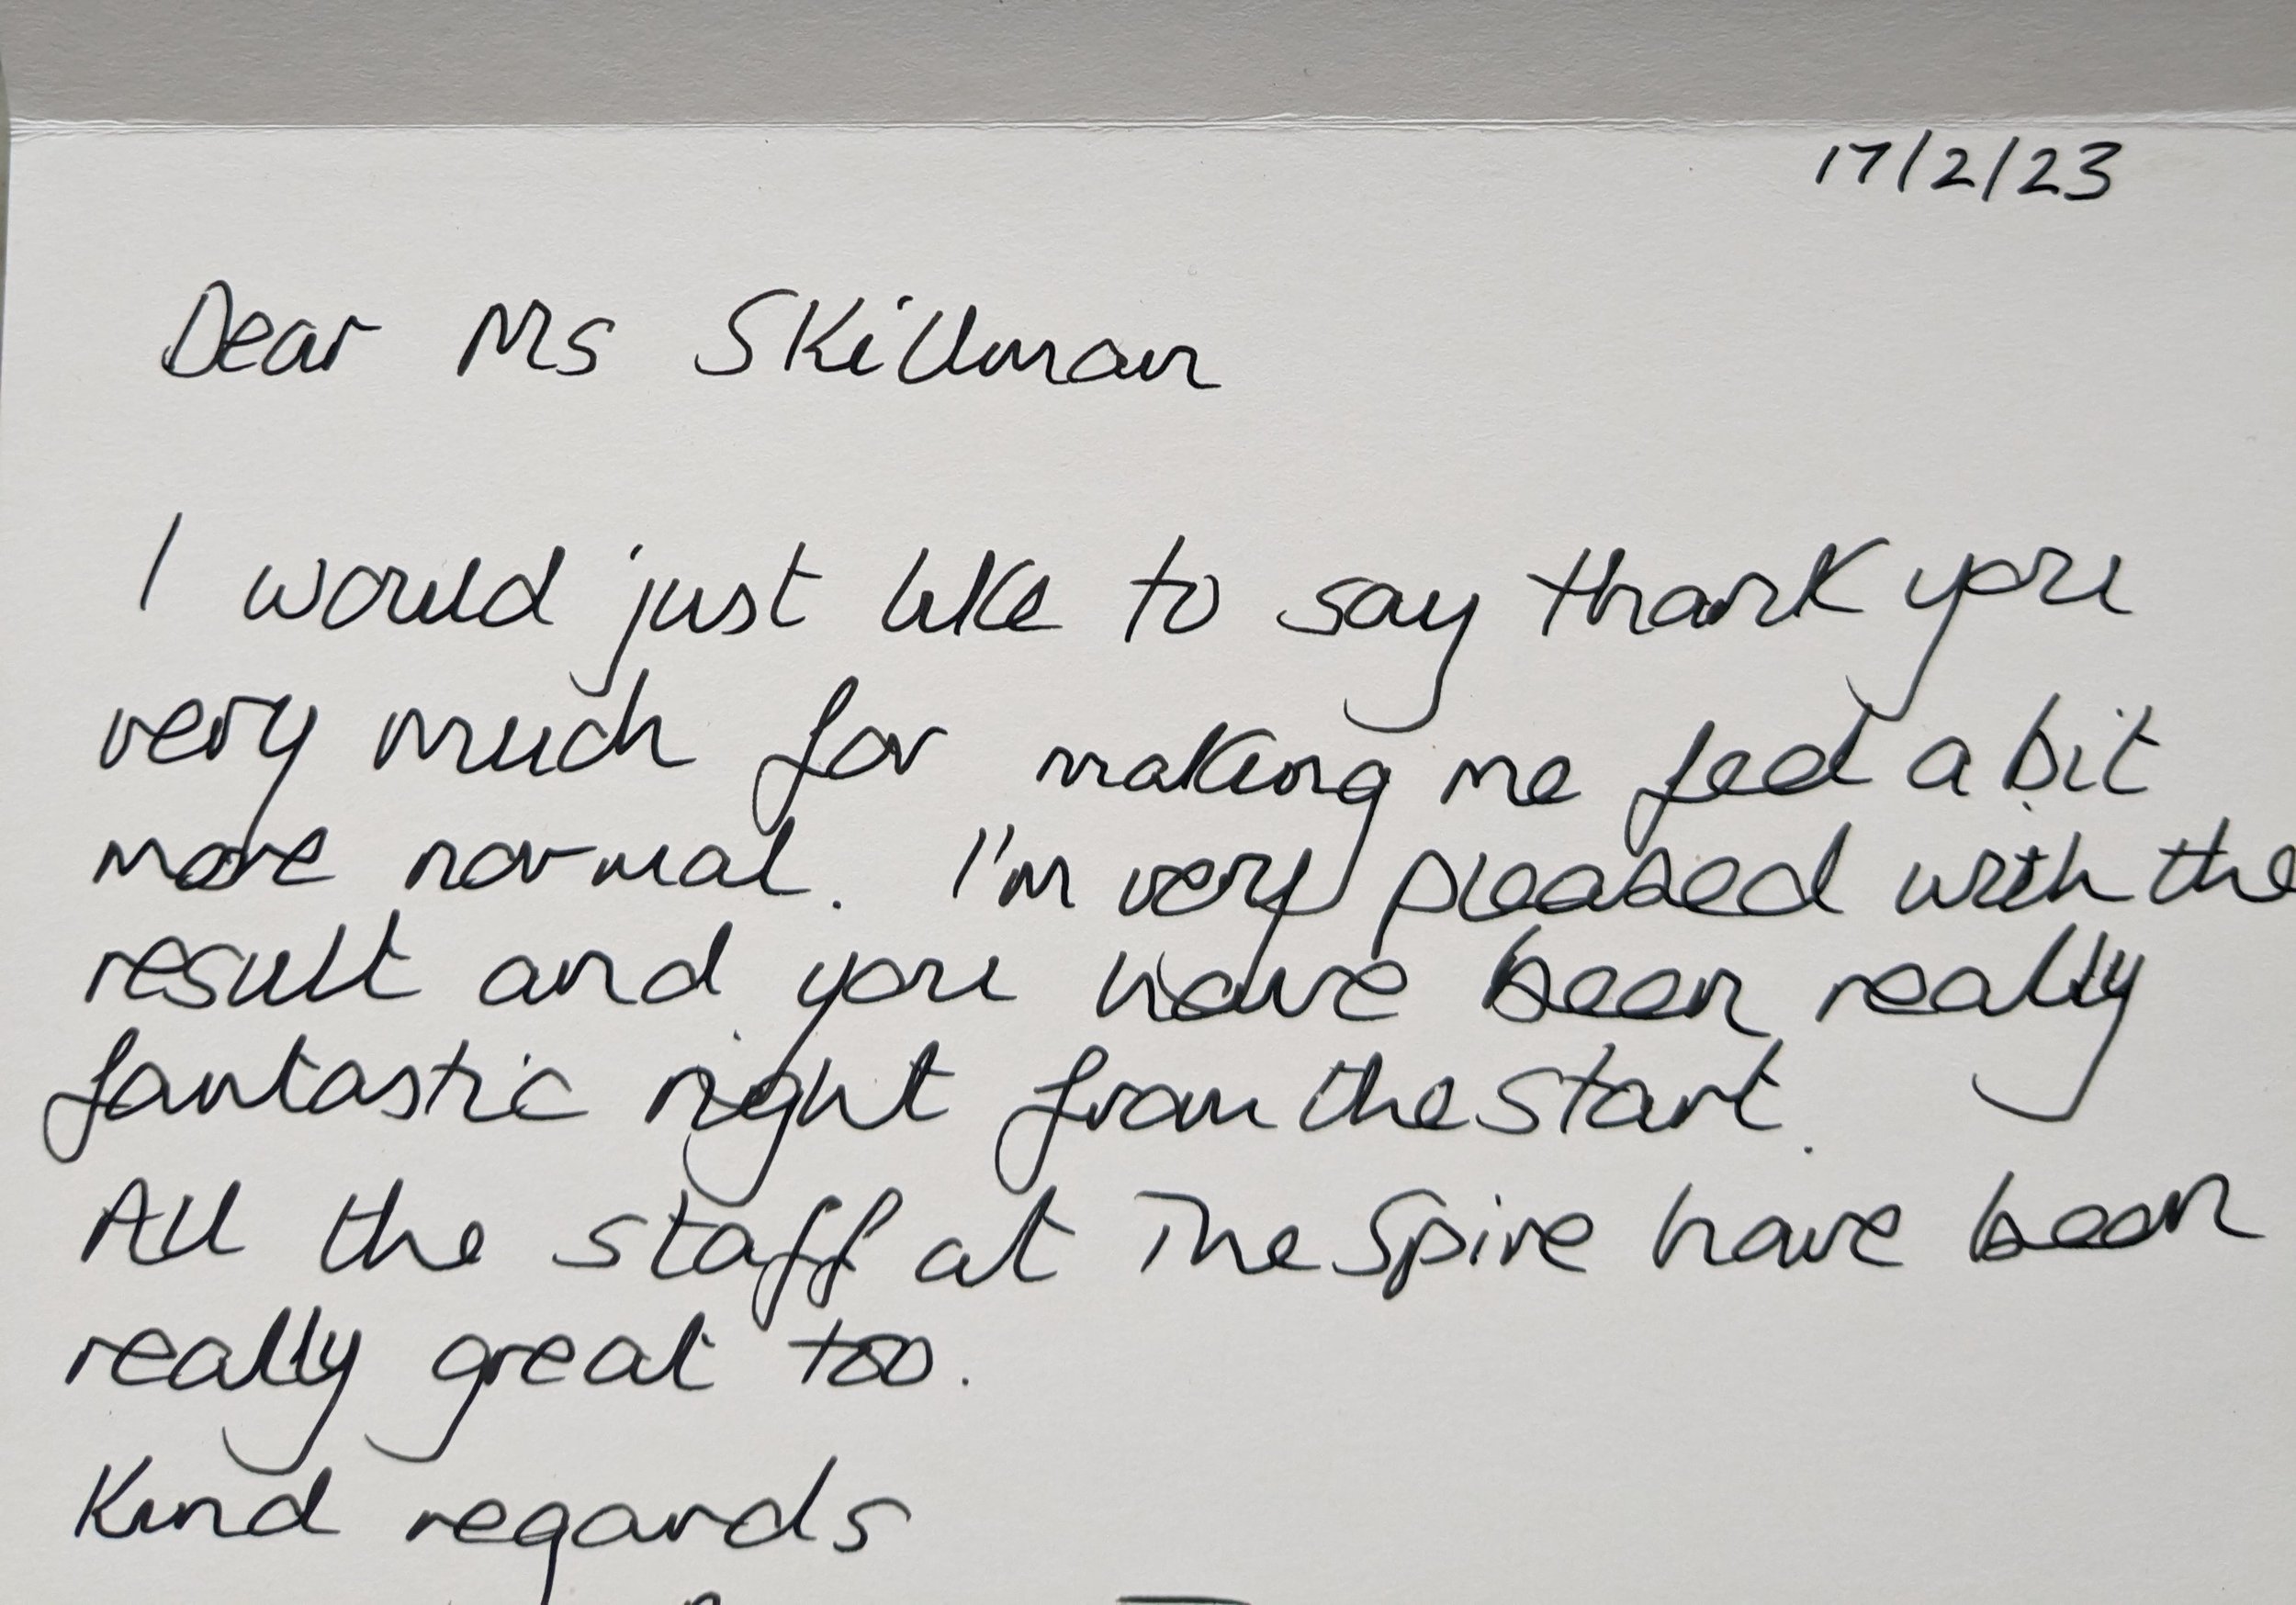 17/2/23
Dear Ms Skillman
I would just like to say thank you
very much for making me feel a bit
more normal. I'm very pleased with the
result and you have been really
fantastic right from the start.
All the staff at The Spire have been
really great too.
Kind regards